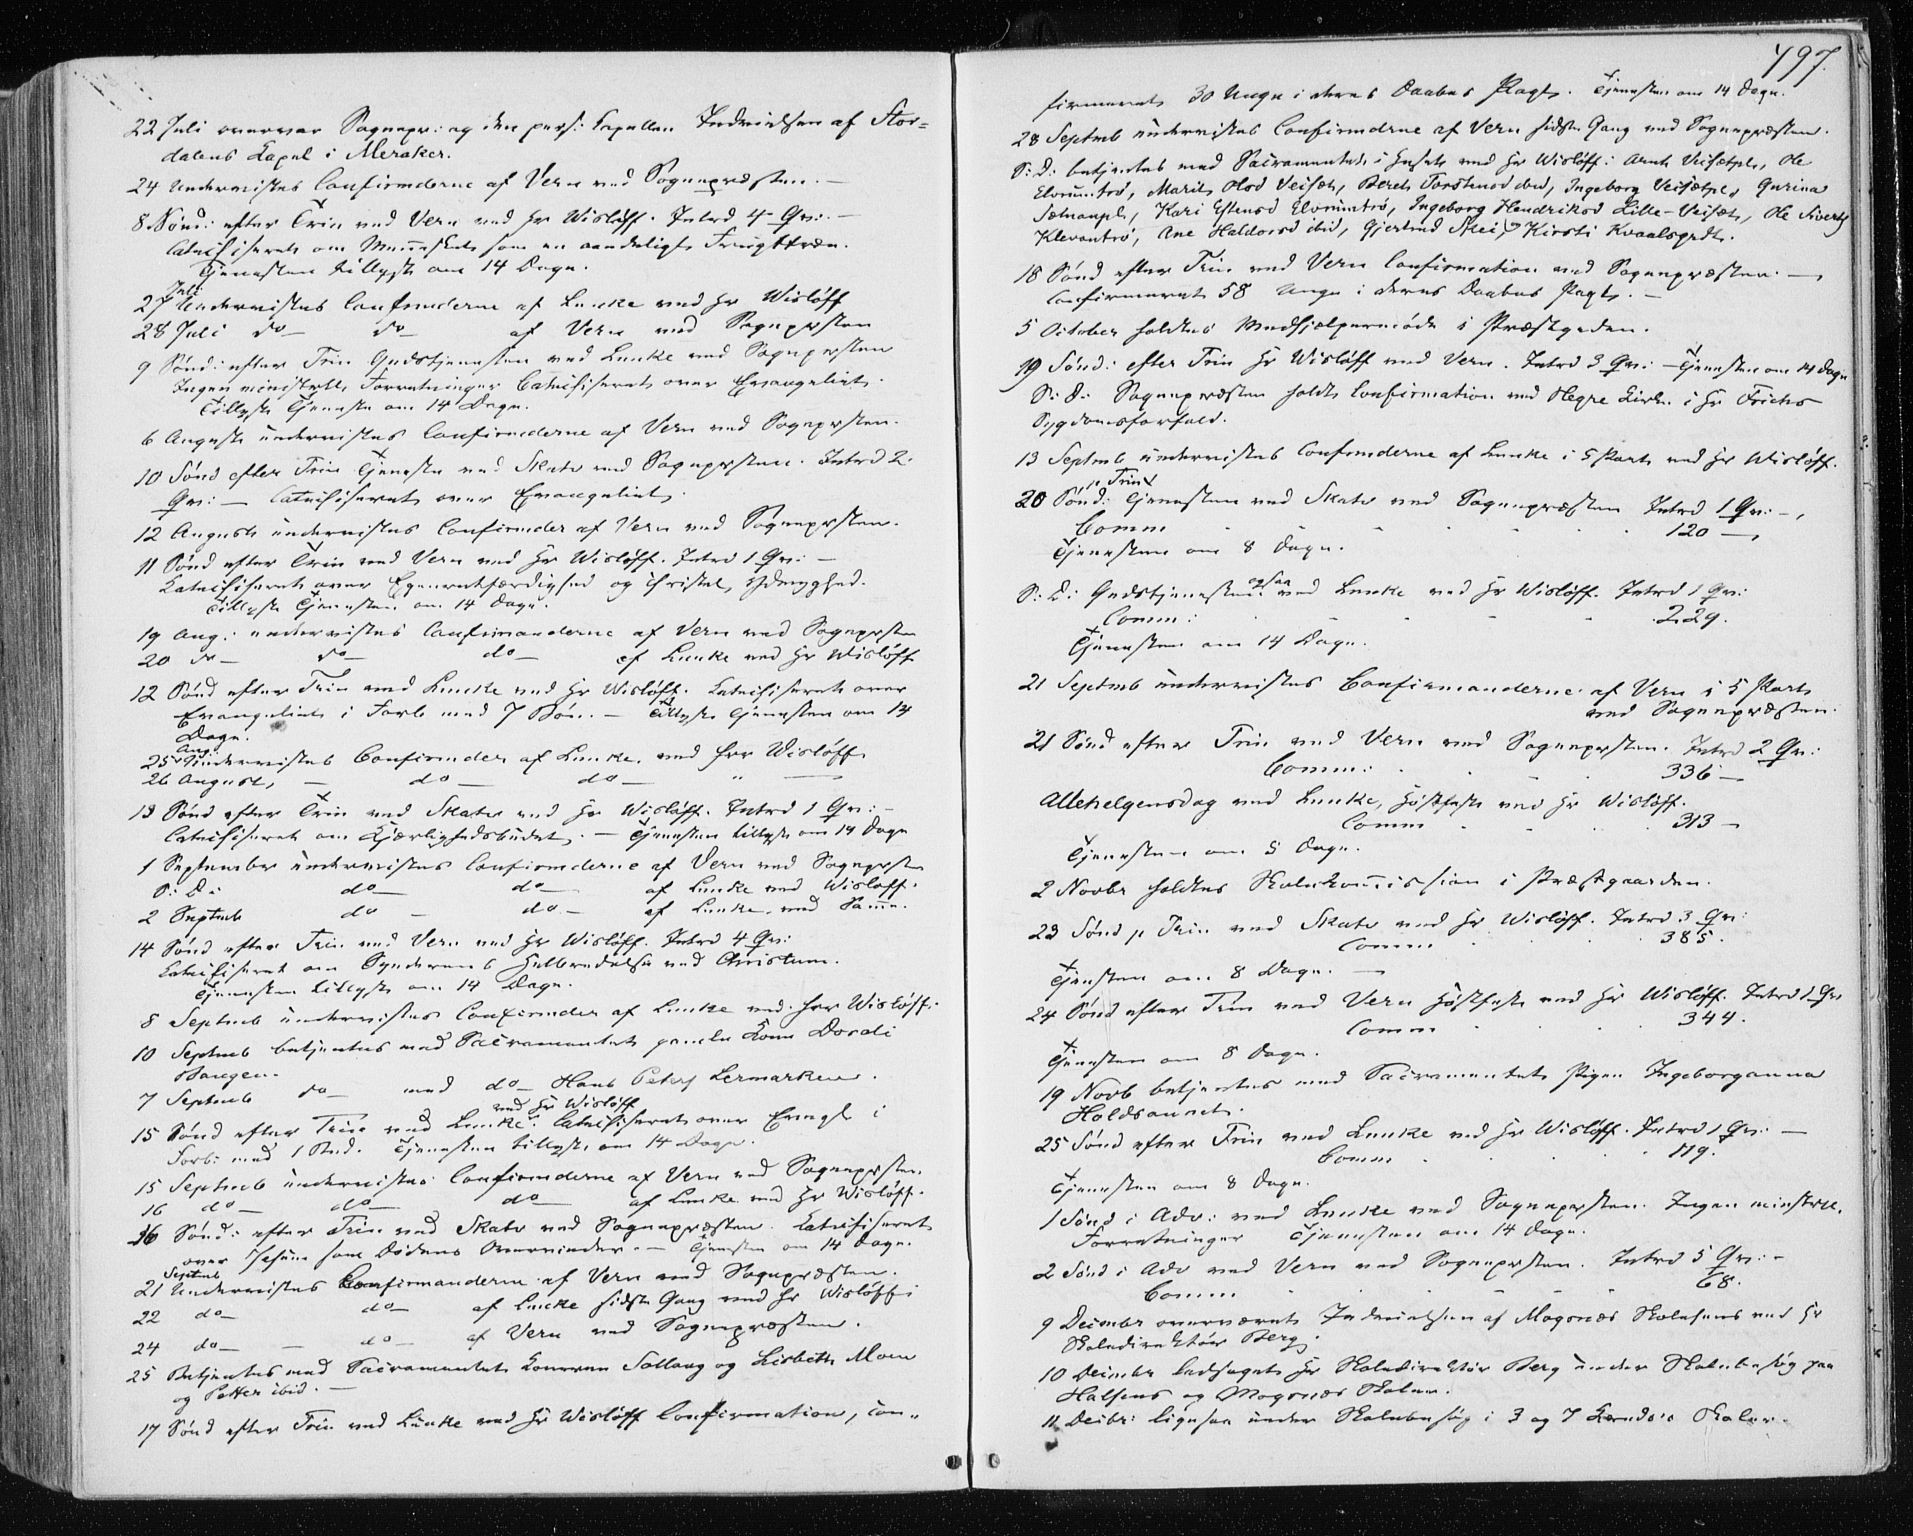 22 Juli overvar Sognepr: og den pers: Kapellan Indvielsen af Stor-
dalens Kapel i Meraker.
24 Undervistes Confirmderne af Vern ved Sognepræsten. —
8 Sønd: efter Trin ved Vern ved Hr Wisløff. Introd 4 Qv: —
Catechiseret om Mennesket som en aandeligt Frugttræ.
Tjenesten tillyst om 14 Dage.
27 Juli Undervistes Confirmderne af Lunke ved Hr Wisløff
28 Juli do — do af Vern ved Sognepræsten
9 Sønd: efter Trin Gudstjenesten ved Lunke ved Sognepræsten
Ingen ministrelle Forretninger Catechiseret over Evangeliet.
Tillyst Tjeneste om 14 Dage.
6 August undervistes Confirmderne af Vern ved Sognepræsten.
10 Sønd efter Trin Tjeneste ved Skatv ved Sognepræsten. Introd 2
Qv: — Catechiseret over Evangeliet.
12 August undervistes Confirmder af Vern ved Sognepræsten.
11 Sønd efter Trin ved Vern ved Hr Wisløff. Introd 1 Qv: —
Katechiseret over Egenretfærdighed og christel. Ydmyghed.
Tillyst Tjenesten om 14 Dage.
19 Aug: undervistes Confirmanderne af Vern ved Sognepræsten
20 do — do do — af Lunke ved Hr Wisløff
12 Sønd efter Trin ved Luncke ved Hr Wisløff. Katechiseret over
Evangeliet i Forb med 7 Bøn. — Tillyst Tjenesten om 14
Dage.
25 Aug Undervistes Confirmder af Lunke ved Hrr Wisløff
26 August, — do — do — " —
13 Sønd efter Trin ved Skatv ved Hr Wisløff. Introd 1 Qv: —
Catechiseret om Kjærlighedsbudet. — Tjenesten tillyst om 14 Dage
1 September undervistes Confirmderne af Vern ved Sognepræsten
S: D: do — do — af Lunke ved Wisløff.
2 Septmb do — do — af Lunke ved Samme.
14 Sønd efter Trin ved Vern ved Hr Wisløff. Introd 4 Qv:
Katechiseret om Synderens Helbredelse ved Christum.
Tjenesten tillyst om 14 Dage.
8 Septmb undervistes Confirmder af Lunke ved Hrr Wisløff.
10 Septmb betjentes med Sacramentet gamle Kone Dordi
Stangen.
7 Septmb do — med do — Hans Peters Lermarken.
15 Sønd efter Trin ved Lunke ved Hr Wisløff Catechiseret over Evngl i
Forb: med 1 Bud. Tjenesten tillyst om 14 Dage.
15 Septmb undervistes Confirmderne af Vern ved Sognepræsten
16 do — do — do — af Lunke ved Hr Wisløff.
16 Sønd: efter Trin ved Skatv ved Sognepræsten. Katechiseret
over Jesum som Dødens Overvinder. — Tjenesten om 14 Dage.
21 Septmb Undervistes Confirmanderne af Vern ved Sognepræsten.
22 do — do — af Luncke sidste Gang ved Hr Wisløff
24 do — — do — af Vern ved Sognepræsten.
25 Betjentes med Sacramentet Konerne og Lisbeth Moen
og Petter ibid. —
17 Sønd efter Trin ved Lunke ved Hr Wisløff Confirmation, con-
497.
firmeret 30 Unge i deres Daabes Pagt. Tjenesten om 14 Dage.
28 Septmb undervistes Confirmderne af Vern sidste Gang ved Sognepræsten.
S: D: betjentes med Sacramentet i Huset ved Hr Wisløff: Ole
Marit Olsd Ingeborg Gurina
Kari Estensd Ingeborg Hendriksd Lille- Ole Siverts
Ane Haldorsd ibid, Gjertrud Kirsti
18 Sønd efter Trin ved Vern Confirmation ved Sognepræsten. —
Confirmeret 58 Unge i deres Daabes Pagt. —
5 October holdtes Medhjælpermøde i Præstgaden.
19 Sønd: efter Trin Hr Wisløff ved Vern. Introd 3 Qv: — Tjenesten om 14 Dage
S: D: Sognepræsten holdt Confirmation ved Hegre Kirke i Hr Frichs
Sygdomsforfald.
13 Septmb undervistes Confirmderne af Lunke i 5 Part ved Hr Wisløff.
20 Sønd: p Trin Tjenesten ved Skatv ved Sognepræsten Introd 1 Qv: —
Comm 120 —
Tjenesten om 8 Dage.
S: D: Gudstjenesten ogsaa ved Lunke ved Hr Wisløff. Introd 1 Qv:
Comm: 229.
Tjenesten om 14 Dage.
21 Septmb undervistes Confirmanderne af Vern i 5 Part
ved Sognepræsten.
21 Sønd efter Trin ved Vern ved Sognepræsten. Introd 2 Qv:
Comm: 336 —
Allehelgensdag ved Lunke, Høstfest ved Hr Wisløff.
Comm 313 —
Tjenesten om 8 Dage.
2 Novbr holdtes Skolekomission i Præstgaarden.
23 Sønd p Trin ved Skatv ved Hr Wisløff. Introd 3 Qv:
Comm 385.
Tjenesten om 8 Dage. —
24 Sønd efter Trin ved Vern Høstfest ved Hr Wisløff. Introd 1 Qv
Comm 344.
Tjenesten om 8 Dage.
19 Novb betjentes med Sacramentet Pigen Ingeborganna
25 Sønd efter Trin ved Lunke ved Hr Wisløff. Introd 1 Qv: —
Comm 119.
Tjenesten om 8 Dage.
1 Sønd i Adv: ved Luncke ved Sognepræsten. Ingen minstrle.
Forretninger Tjenesten om 14 Dage.
2 Sønd i Adv ved Vern ved Sognepræsten. Introd 5 Qv: —
Comm 68.
9 Decmbr overværet Indvielsen af Mogsnæs Skolehuus ved Hr
Skoledirektør Berg.
10 Decmbr ledsaget Hr Skoledirektør Berg under Skolebesøg paa
Halsens og Mogsnæs Skoler.
11 Decbr: ligesaa under Skolebesøg i 3 og 7 Skoler.